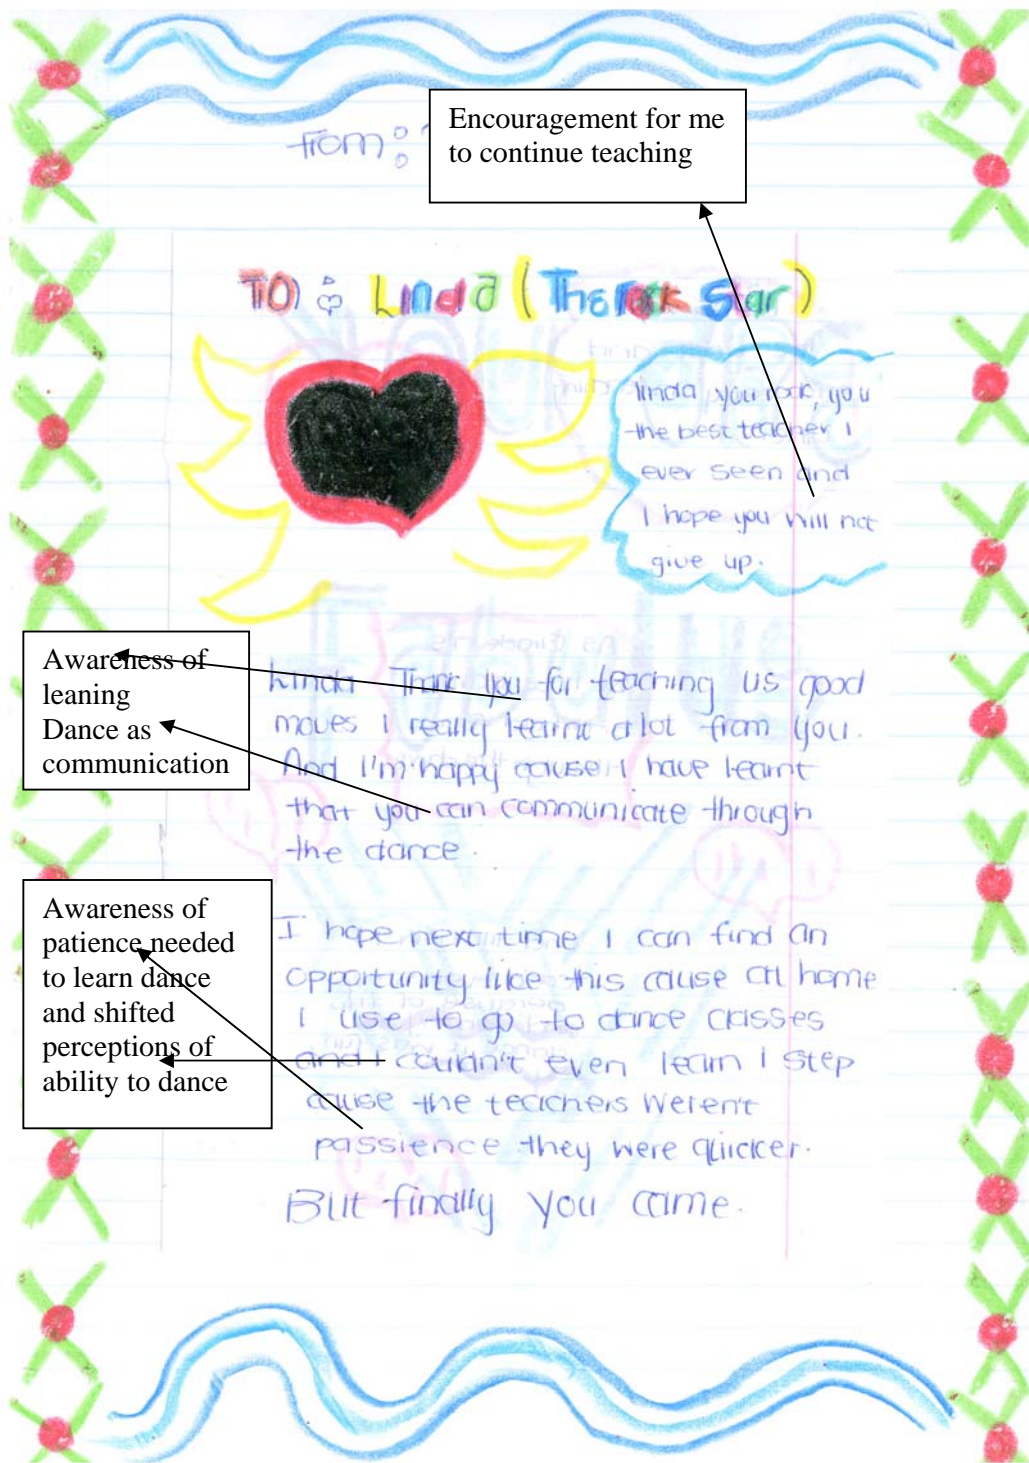 from:
Encouragement for me
to continue teaching
TO: Linda (The rock star)
linda you rock, you
the best teacher I
ever seen and
I hope you will not
give up.
Awareness of
leaning
Dance as
communication
Linda Thank you for teaching us good
moves I really learnt alot from you.
And I'm happy cause I have learnt
that you can communicate through
the dance.
Awareness of
patience needed
to learn dance
and shifted
perceptions of
ability to dance
I hope next time I can find an
opportunity like this cause at home
I use to go to dance classes
and I couldn't even learn 1 step
cause the teachers weren't
passience they were quicker.
But finally you came.